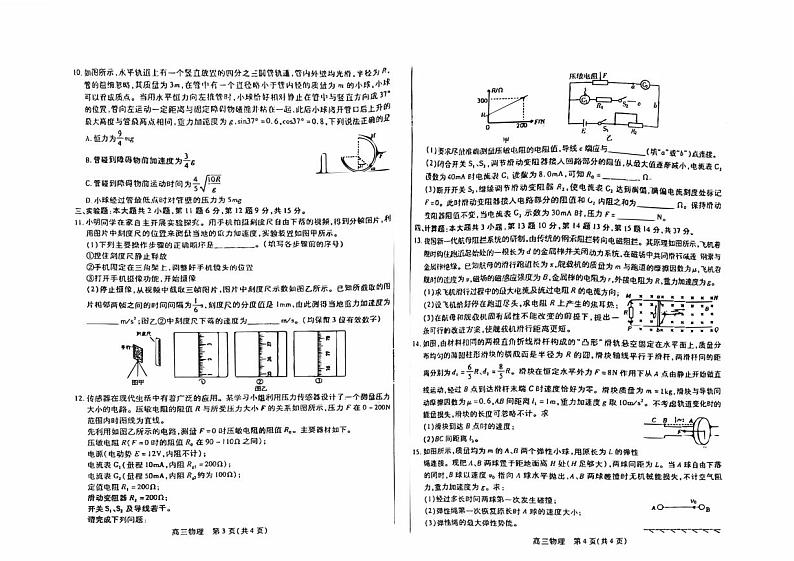 10. 如图所示,水平轨道上有一个竖直放置的四分之三圆管轨道,管内外壁均光滑,半径为R,
管的粗细忽略,其质量为3m,在管中有一个直径略小于管内径的质量为 m 的小球,小球
可以看成质点。当用水平恒力向左推管时,小球恰好相对静止在管中与竖直方向成 37°
的位置,管向左运动一定距离与固定障碍物碰撞并粘在一起,此后小球离开管口后上升的
最大高度与管最高点相同,重力加速度为 g,sin37°=0.6,cos37°=0.8,下列说法正确的是
A. 恒力为9/4mg
B. 管碰到障碍物前加速度为3/4g
C. 管碰到障碍物前运动时间为4/5√(10R/g)
D. 小球经过管最低点时对管壁的压力为 5mg
三、实验题:本大题共 2 小题,第 11 题 6 分,第 12 题 9 分,共 15 分。
11. 小明同学在家自主开展实验探究。用手机拍摄刻度尺自由下落的视频,得到分帧图片,利
用图片中刻度尺的位置来测量当地的重力加速度,实验装置如图甲所示。
(1)下列主要操作步骤的正确顺序是________。(填写各步骤前的序号)
①捏住刻度尺静止释放
②手机固定在三角架上,调整好手机镜头的位置
③打开手机摄像功能,开始摄像
(2)停止摄像,从视频中截取三帧图片,图片中刻度尺示数如图乙所示。已知所截取的图
片相邻两帧之间的时间间隔为1/6s,刻度尺的分度值是 1mm,由此测得当地重力加速度为
________m/s²;图乙②中刻度尺下落的速度为________m/s。(均保留 3 位有效数字)
刻度尺
手机
图甲
①
②
③
图乙
12. 传感器在现代生活中有着广泛的应用。某学习小组利用压力传感器设计了一个测量压力
大小的电路。压敏电阻的阻值 R 与所受压力大小 F 的关系如图所示,压力 F 在 0~200N
范围内时图线为直线。
先利用如图乙所示的电路,测量 F=0 时压敏电阻的阻值 R₀。主要器材如下。
压敏电阻 R(F=0 时的阻值 R₀ 在 90~110Ω之间);
电源(电动势 E=12V,内阻不计);
电流表 G₁(量程 10mA,内阻 Rg₁=200Ω);
电流表 G₂(量程 50mA,内阻 Rg₂约为 100Ω);
定值电阻 R₁=200Ω;
滑动变阻器 R₂=200Ω;
开关 S₁、S₂ 及导线若干。
请完成下列问题:
高三物理 第 3 页(共 4 页)
R/Ω
300
100
0
200
F/N
甲
压敏电阻
F
G₂
a
b
乙
(1)要求尽量准确测量压敏电阻的电阻值,导线 c 端应与________(填“a”或“b”)点连接。
(2)闭合开关 S₁、S₂,调节滑动变阻器接入回路部分的阻值,从最大值逐渐减小,电流表 G₂
读数为 40mA 时电流表 G₁ 读数为 8.0mA,可知 R₀=________Ω。
(3)断开开关 S₂,继续调节滑动变阻器 R₂,使电流表 G₂ 达到满偏,满偏电流刻度处标记
F=0。此时滑动变阻器接入电路部分的阻值和 G₂ 内阻之和为________Ω。保持滑动
变阻器阻值不变,当电流表 G₂ 示数为 30mA 时,压力 F=________N。
四、计算题:本大题共 3 小题,第 13 题 10 分,第 14 题 13 分,第 15 题 14 分,共 37 分。
(1)求飞机滑行过程中的最大电流及流过电阻 R 的电流方向;
(2)设飞机恰好停在跑道尽头,求电阻 R 上产生的焦耳热;
(3)在航母和舰载机固有属性不能改变的前提下,提出一
条可行的改进方案,使舰载机滑行距离更短。
14. 如图,由材料相同的两根直角折线滑杆构成的“凸形”滑轨悬空固定在水平面上,质量分
布均匀的薄圆柱形滑块的横截面是半径为 R 的圆,滑块轴线平行于滑杆,两滑杆间的距
离分别为d₁=6/5R、d₂=8/5R。滑块在恒定水平外力 F=8N 作用下从 A 点由静止开始做直
线运动,经过 B 点到达滑杆末端 C 时速度恰好为零。滑块质量为 m=1kg,滑块与导轨间
动摩擦因数为 μ=0.6,AB 间距离 l₁=1m,重力加速度 g 取10m/s²。不考虑轨道变化时的
能量损失,滑块的长度可忽略不计。求
(1)滑块到达 B 点时的速度;
(2)BC 间距离 l₂。
15. 如图所示,质量均为 m 的 A、B 两个弹性小球,用原长为 L 的弹性
绳连接。现把 A、B 两球置于距地面高 H 处(H 足够大),两球间距为 L。当 A 球自由下落
的同时,B 球以速度 v₀ 指向 A 球水平抛出,A、B 两球碰撞时无机械能损失,不计空气阻
力,重力加速度为 g。求:
(1)经过多长时间两球第一次发生碰撞;
(2)弹性绳第一次恢复原长时 A 球的速度大小;
(3)弹性绳的最大弹性势能。
高三物理 第 4 页(共 4 页)